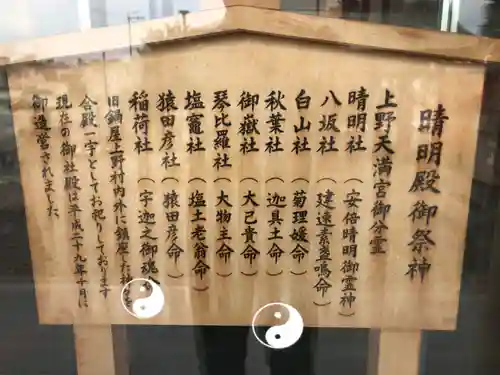 晴明殿御祭神
上野天満宮御分霊
晴明社(安倍晴明御霊神)
八坂社(建速素盞嗚命)
白山社(菊理媛命)
秋葉社(迦具土命)
御嶽社(大己貴命)
琴比羅社(大物主命)
塩竈社(塩土老翁命)
猿田彦社(猿田彦命)
稲荷社(宇迦之御魂
旧鍋屋上野村内外に鎮座した
合殿一宇としてお祀りしております
現在の御社殿は平成二十九年十月に
御造営されました